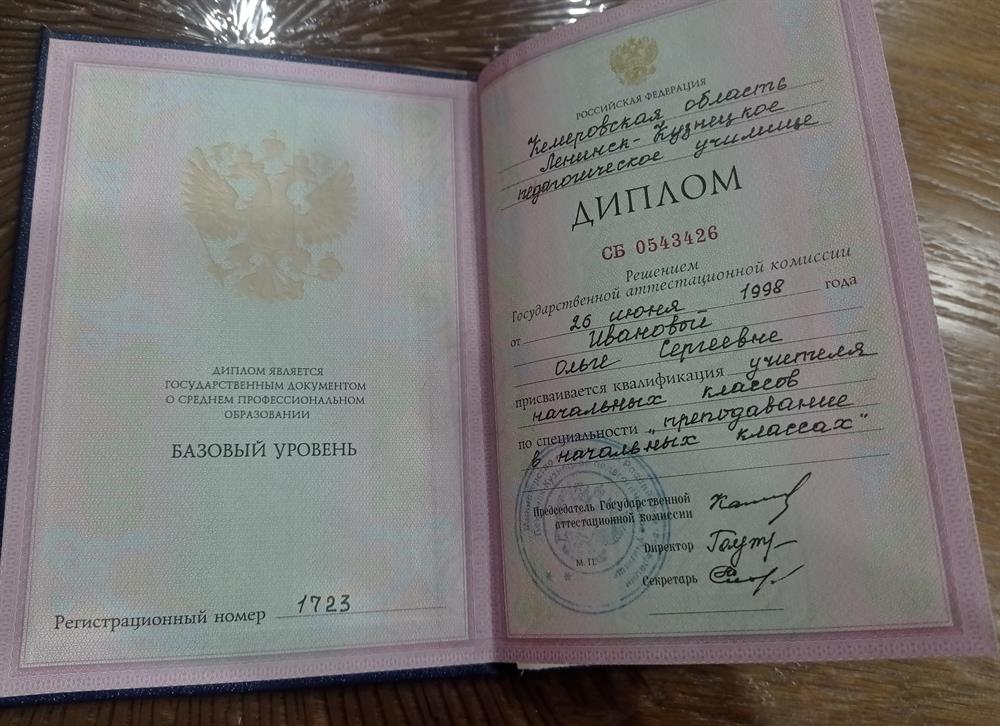 ДИПЛОМ ЯВЛЯЕТСЯ
ГОСУДАРСТВЕННЫМ ДОКУМЕНТОМ
О СРЕДНЕМ ПРОФЕССИОНАЛЬНОМ
ОБРАЗОВАНИИ
БАЗОВЫЙ УРОВЕНЬ
Регистрационный номер 1723
РОССИЙСКАЯ ФЕДЕРАЦИЯ
Кемеровская область
Ленинск-Кузнецкое
педагогическое училище
ДИПЛОМ
СБ 0543426
Решением
Государственной аттестационной комиссии
от 26 июня 1998 года
Ивановой
Ольге Сергеевне
присваивается квалификация учителя
начальных классов
по специальности „преподавание
в начальных классах"
Председатель Государственной
аттестационной комиссии
М. П.
Директор
Секретарь